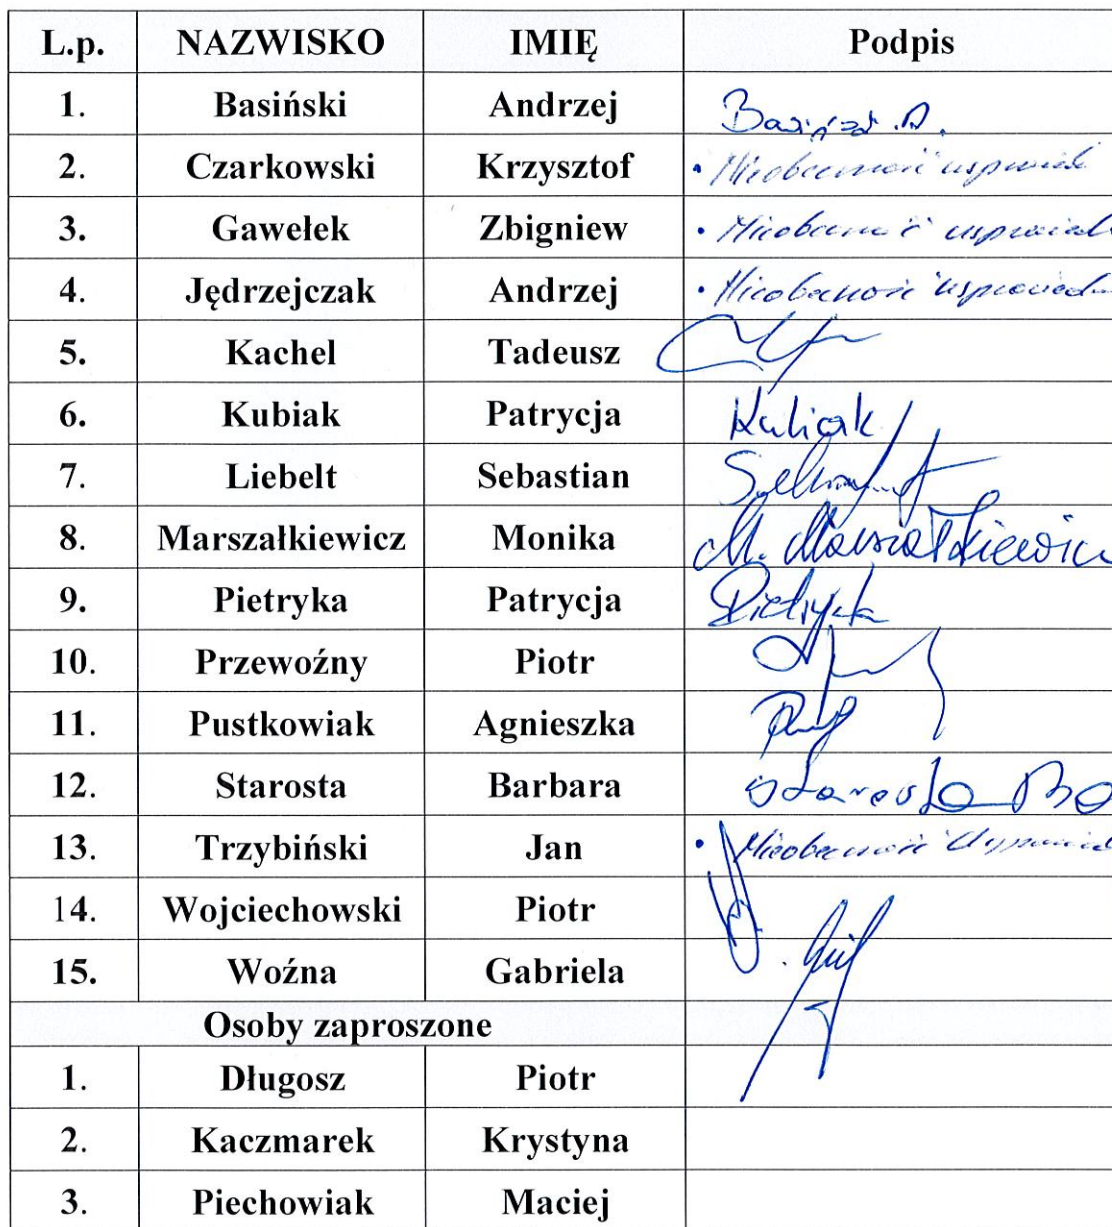 L.p. NAZWISKO IMIĘ Podpis
1. Basiński Andrzej
2. Czarkowski Krzysztof • Nieobecność uspraw
3. Gawełek Zbigniew • Nieobecność
4. Jędrzejczak Andrzej • Nieobecność usprawied
5. Kachel Tadeusz
6. Kubiak Patrycja Kubiak
7. Liebelt Sebastian
8. Marszałkiewicz Monika M. Marszałkiewicz
9. Pietryka Patrycja
10. Przewoźny Piotr
11. Pustkowiak Agnieszka
12. Starosta Barbara Starosta Ba
13. Trzybiński Jan • Nieobecność
14. Wojciechowski Piotr
15. Woźna Gabriela
Osoby zaproszone
1. Długosz Piotr
2. Kaczmarek Krystyna
3. Piechowiak Maciej